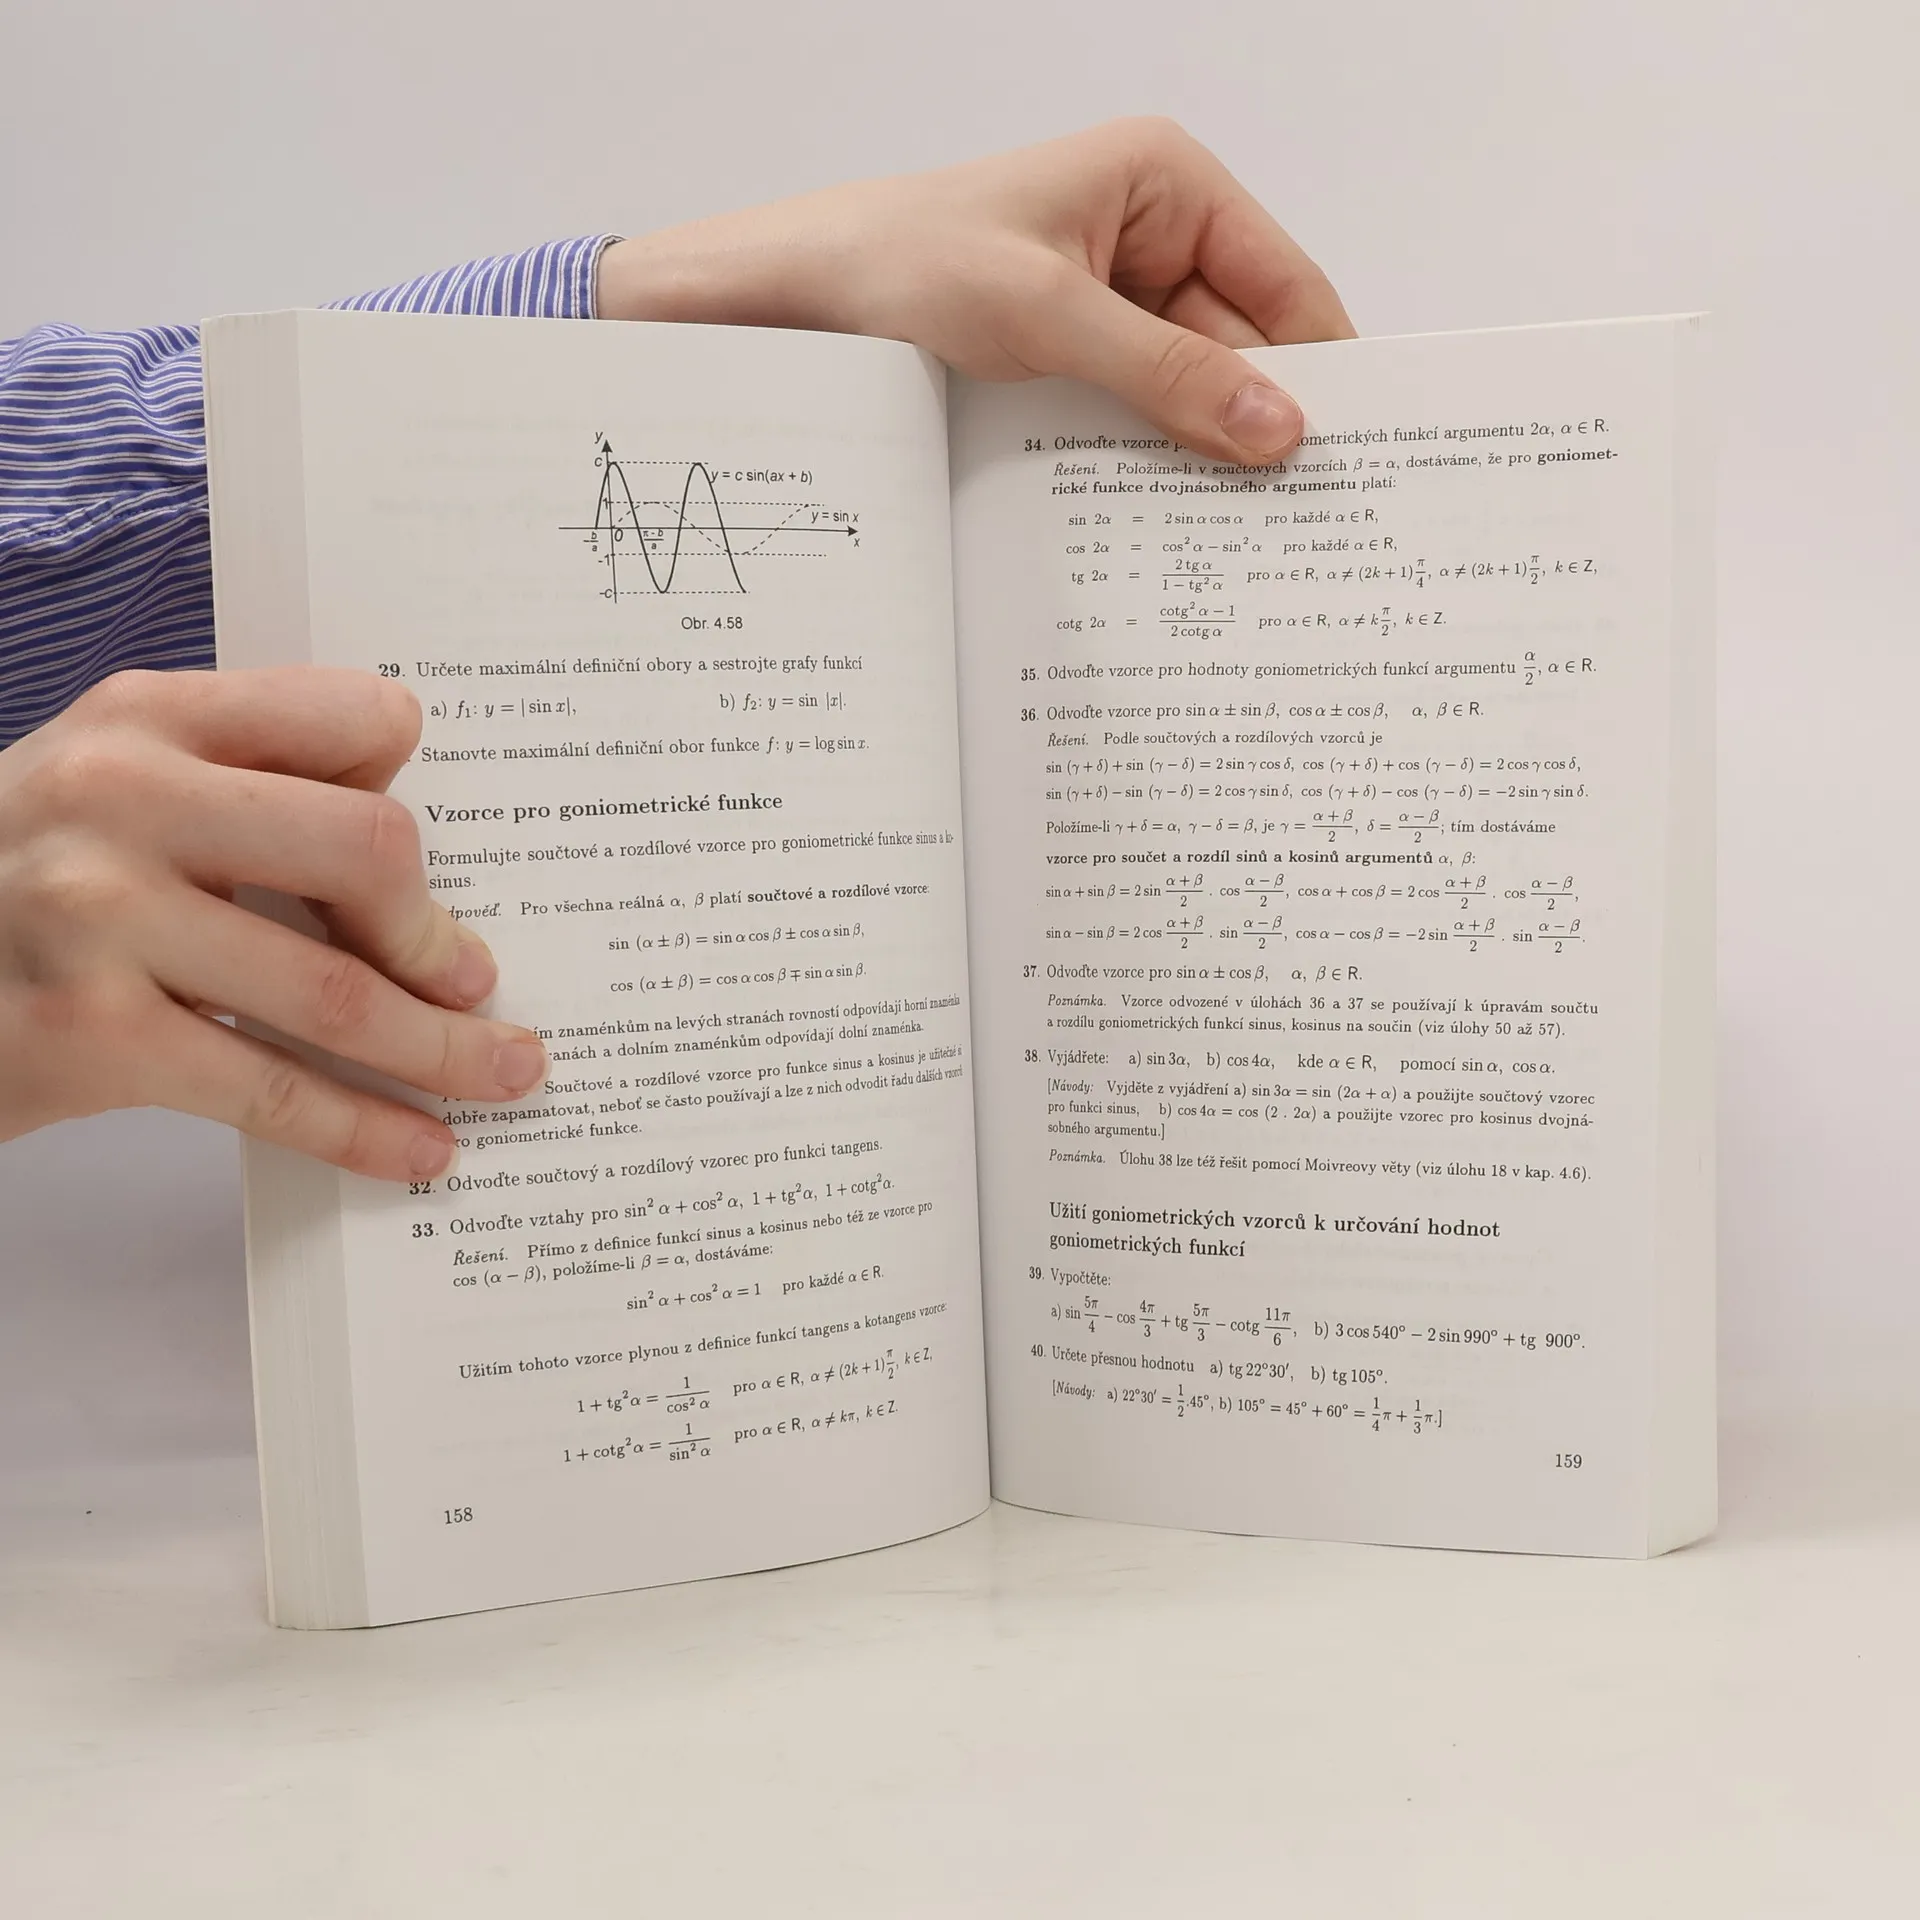 y
c
y = c sin(ax + b)
1
y = sin x
-b/a 0 π-b/a x
-1
-c
Obr. 4.58
29. Určete maximální definiční obory a sestrojte grafy funkcí
a) f₁: y = |sin x|, b) f₂: y = sin |x|.
Stanovte maximální definiční obor funkce f: y = log sin x.
Vzorce pro goniometrické funkce
Formulujte součtové a rozdílové vzorce pro goniometrické funkce sinus a ko-
sinus.
Pro všechna reálná α, β platí součtové a rozdílové vzorce:
sin (α ± β) = sin α cos β ± cos α sin β,
cos (α ± β) = cos α cos β ∓ sin α sin β.
znaménkům na levých stranách rovností odpovídají horní znaménka
a dolním znaménkům odpovídají dolní znaménka.
Součtové a rozdílové vzorce pro funkce sinus a kosinus je užitečné si
dobře zapamatovat, neboť se často používají a lze z nich odvodit řadu dalších vzorců
goniometrické funkce.
32. Odvoďte součtový a rozdílový vzorec pro funkci tangens.
33. Odvoďte vztahy pro sin² α + cos² α, 1 + tg²α, 1 + cotg²α.
Řešení. Přímo z definice funkcí sinus a kosinus nebo též ze vzorce pro
cos (α − β), položíme-li β = α, dostáváme:
sin² α + cos² α = 1 pro každé α ∈ R.
Užitím tohoto vzorce plynou z definice funkcí tangens a kotangens vzorce:
1 + tg²α = 1/cos² α pro α ∈ R, α ≠ (2k + 1)π/2, k ∈ Z,
1 + cotg²α = 1/sin² α pro α ∈ R, α ≠ kπ, k ∈ Z.
158
34. Odvoďte vzorce argumentu 2α, α ∈ R.
Řešení. Položíme-li v součtových vzorcích β = α, dostáváme, že pro goniomet-
rické funkce dvojnásobného argumentu platí:
sin 2α = 2 sin α cos α pro každé α ∈ R,
cos 2α = cos² α − sin² α pro každé α ∈ R,
tg 2α = 2 tg α/(1 − tg² α) pro α ∈ R, α ≠ (2k + 1)π/4, α ≠ (2k + 1)π/2, k ∈ Z,
cotg 2α = (cotg² α − 1)/(2 cotg α) pro α ∈ R, α ≠ kπ/2, k ∈ Z.
35. Odvoďte vzorce pro hodnoty goniometrických funkcí argumentu α/2, α ∈ R.
36. Odvoďte vzorce pro sin α ± sin β, cos α ± cos β, α, β ∈ R.
Řešení. Podle součtových a rozdílových vzorců je
sin (γ + δ) + sin (γ − δ) = 2 sin γ cos δ, cos (γ + δ) + cos (γ − δ) = 2 cos γ cos δ,
sin (γ + δ) − sin (γ − δ) = 2 cos γ sin δ, cos (γ + δ) − cos (γ − δ) = −2 sin γ sin δ.
Položíme-li γ + δ = α, γ − δ = β, je γ = (α + β)/2, δ = (α − β)/2; tím dostáváme
vzorce pro součet a rozdíl sinů a kosinů argumentů α, β:
sin α + sin β = 2 sin (α + β)/2 . cos (α − β)/2, cos α + cos β = 2 cos (α + β)/2 . cos (α − β)/2,
sin α − sin β = 2 cos (α + β)/2 . sin (α − β)/2, cos α − cos β = −2 sin (α + β)/2 . sin (α − β)/2.
37. Odvoďte vzorce pro sin α ± cos β, α, β ∈ R.
Poznámka. Vzorce odvozené v úlohách 36 a 37 se používají k úpravám součtu
a rozdílu goniometrických funkcí sinus, kosinus na součin (viz úlohy 50 až 57).
38. Vyjádřete: a) sin 3α, b) cos 4α, kde α ∈ R, pomocí sin α, cos α.
[Návody: Vyjděte z vyjádření a) sin 3α = sin (2α + α) a použijte součtový vzorec
pro funkci sinus, b) cos 4α = cos (2 . 2α) a použijte vzorec pro kosinus dvojná-
sobného argumentu.]
Poznámka. Úlohu 38 lze též řešit pomocí Moivreovy věty (viz úlohu 18 v kap. 4.6).
Užití goniometrických vzorců k určování hodnot
goniometrických funkcí
39. Vypočtěte:
a) sin 5π/4 − cos 4π/3 + tg 5π/3 − cotg 11π/6, b) 3 cos 540° − 2 sin 990° + tg 900°.
40. Určete přesnou hodnotu a) tg 22°30′, b) tg 105°.
[Návody: a) 22°30′ = 1/2.45°, b) 105° = 45° + 60° = 1/4π + 1/3π.]
159